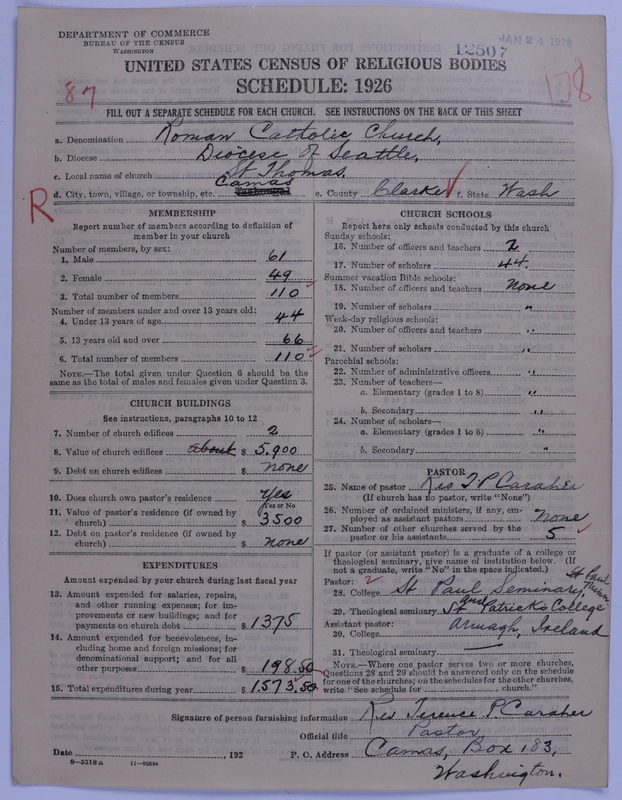 DEPARTMENT OF COMMERCE
BUREAU OF THE CENSUS
WASHINGTON
JAN 24 1928
12507
UNITED STATES CENSUS OF RELIGIOUS BODIES
SCHEDULE: 1926
87
178
FILL OUT A SEPARATE SCHEDULE FOR EACH CHURCH. SEE INSTRUCTIONS ON THE BACK OF THIS SHEET
a. Denomination Roman Catholic Church,
b. Diocese Diocese of Seattle,
c. Local name of church St Thomas,
d. City, town, village, or township, etc. Camas e. County Clarke f. State Wash
R
MEMBERSHIP
Report number of members according to definition of
member in your church
Number of members, by sex:
1. Male 61
2. Female 49
3. Total number of members 110
Number of members under and over 13 years old:
4. Under 13 years of age 44
5. 13 years old and over 66
6. Total number of members 110
NOTE.—The total given under Question 6 should be
the same as the total of males and females given under Question 3.
CHURCH BUILDINGS
See instructions, paragraphs 10 to 12
7. Number of church edifices 2
8. Value of church edifices about $ 5,900
9. Debt on church edifices $ none
10. Does church own pastor's residence yes
(Yes or No)
11. Value of pastor's residence (if owned by
church) $ 3500
12. Debt on pastor's residence (if owned by
church) $ none
EXPENDITURES
Amount expended by your church during last fiscal year
13. Amount expended for salaries, repairs,
and other running expenses; for im-
provements or new buildings; and for
payments on church debt $ 1375
14. Amount expended for benevolences, in-
cluding home and foreign missions; for
denominational support; and for all
other purposes $ 198.50
15. Total expenditures during year $ 1,573.50
CHURCH SCHOOLS
Report here only schools conducted by this church
Sunday schools:
16. Number of officers and teachers 2
17. Number of scholars 44.
Summer vacation Bible schools:
18. Number of officers and teachers none
19. Number of scholars "
Week-day religious schools:
20. Number of officers and teachers "
21. Number of scholars "
Parochial schools:
22. Number of administrative officers "
23. Number of teachers—
a. Elementary (grades 1 to 8) "
b. Secondary "
24. Number of scholars—
a. Elementary (grades 1 to 8) "
b. Secondary "
PASTOR
25. Name of pastor Rev T P Caraher
(If church has no pastor, write "None")
26. Number of ordained ministers, if any, em-
ployed as assistant pastors none
27. Number of other churches served by the
pastor or his assistants 5
If pastor (or assistant pastor) is a graduate of a college or
theological seminary, give name of institution below. (If
not a graduate, write "No" in the space indicated.)
Pastor:
28. College St Paul Seminary, St Paul Minn
29. Theological seminary and St Patrick's College
Assistant pastor: Armagh, Ireland
30. College
31. Theological seminary
NOTE.—Where one pastor serves two or more churches,
Questions 28 and 29 should be answered only on the schedule
for one of the churches; on the schedules for the other churches,
write "See schedule for church."
Signature of person furnishing information Rev Terence P. Caraher
Official title Pastor
Date , 192 P. O. Address Camas, Box 183,
Washington.
8—5518a